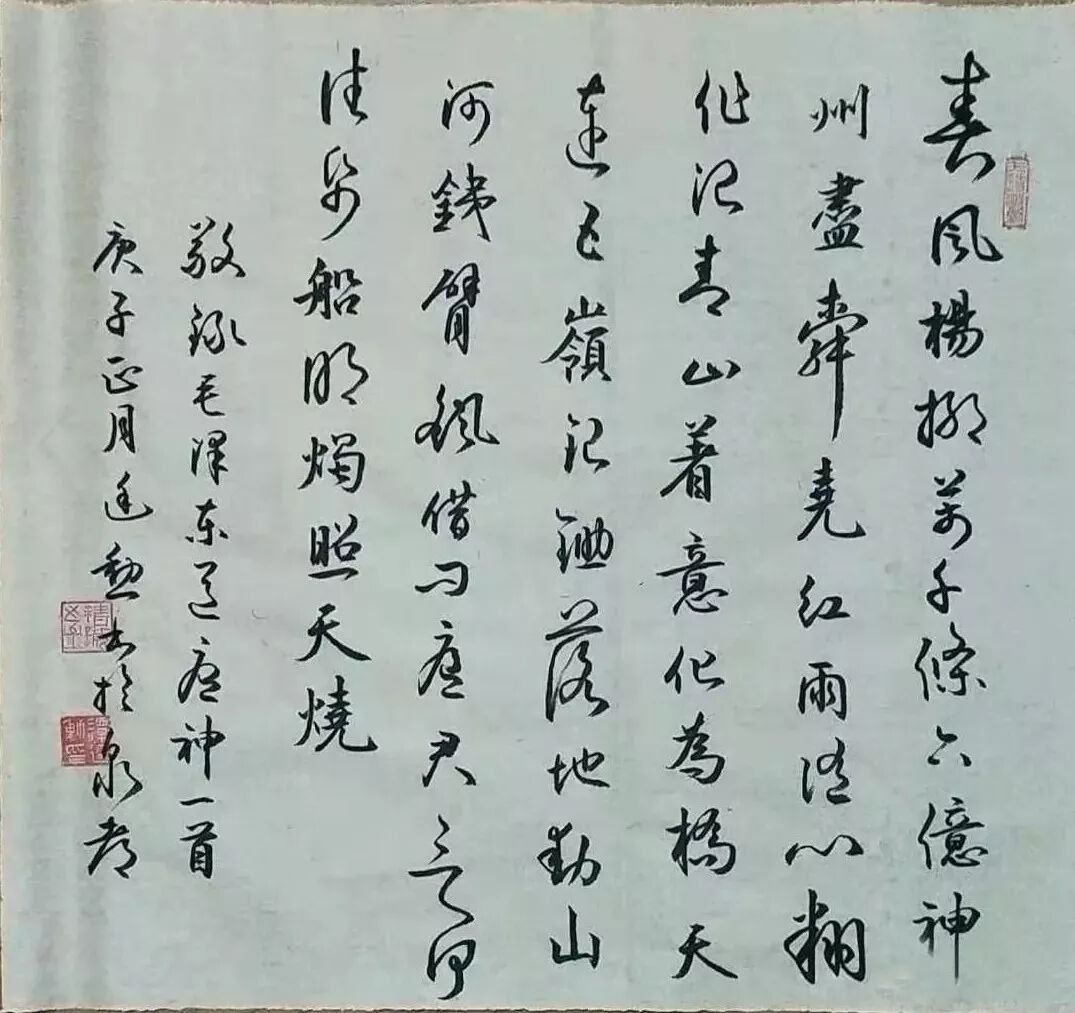 春風楊柳萬千條六億神
州盡舜堯紅雨隨心翻
作浪青山着意化為橋天
連五嶺銀鋤落地動山
河銕臂搖借問瘟君欲何
往紙船明燭照天燒
敬錄毛澤東送瘟神一首
庚子正月廷勳書於泉都